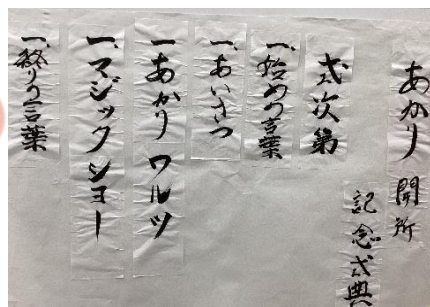 あかり開所
記念式典
式次第
一、始めの言葉
一、あいさつ
一あかりワルツ
一、マジックショー
一、終りの言葉